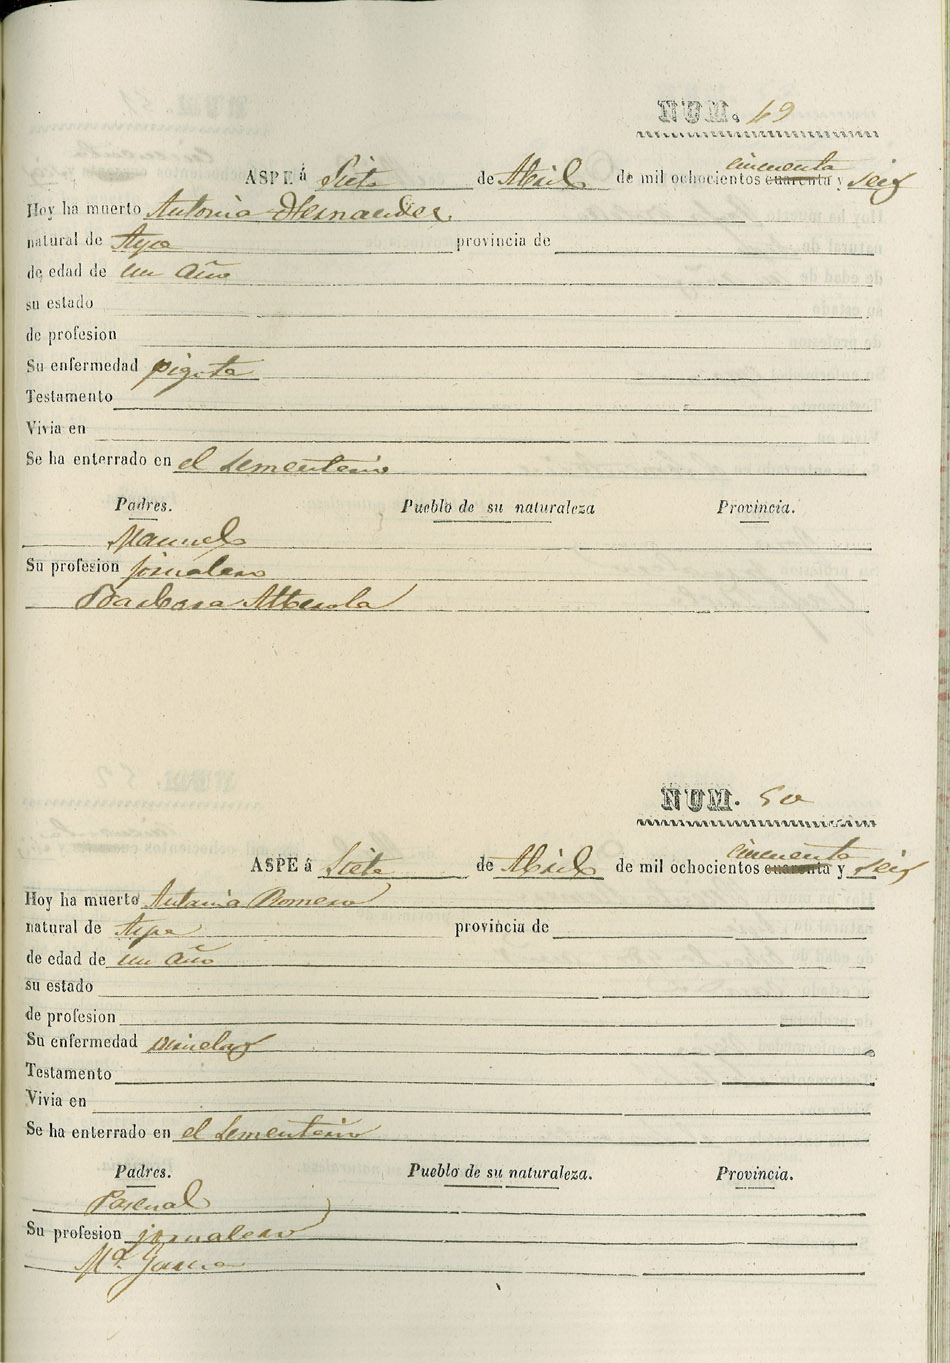 NUM. 49
ASPE á Siete de Abril de mil ochocientos cincuenta cuarenta y seis
Hoy ha muerto Antonia Hernandez
natural de Aspe provincia de
de edad de un año
su estado
de profesion
Su enfermedad pigota
Testamento
Vivia en
Se ha enterrado en el Sementerio
Padres. Pueblo de su naturaleza Provincia.
Manuel
Su profesion jornalero
Barbara Alberola
NUM. 50
ASPE á Siete de Abril de mil ochocientos cincuenta cuarenta y seis
Hoy ha muerto Antonia Romero
natural de Aspe provincia de
de edad de un año
su estado
de profesion
Su enfermedad viruelas
Testamento
Vivia en
Se ha enterrado en el Sementerio
Padres. Pueblo de su naturaleza. Provincia.
Pascual
Su profesion jornalero
Mª. Garcia